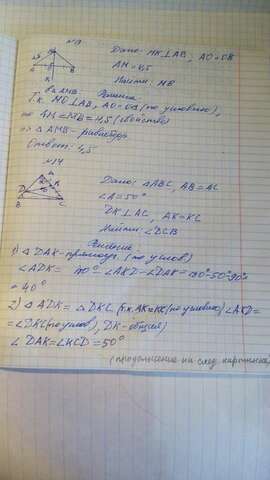 №13
Дано: MK⊥AB, AO=OB
AM=4,5
Найти: MB
Решение
Т.к. MO⊥AB, AO=OB (по условию),
то AM=MB=4,5 (свойство)
=> △AMB-равнобедр
Ответ: 4,5
№14
Дано: △ABC, AB=AC
∠A=50°
DK⊥AC, AK=KC
Найти: ∠DCB
Решение:
1) △DAK-прямоуг. (по услов)
∠ADK= 180°-∠AKD-∠DAK=180°-50°-90°=
=40°
2) △ADK=△DKC (т.к. AK=KC (по условию) ∠AKD=
=∠DKC (по услов), DK-общей)
∠DAK=∠KCD=50°
(продолжение на след.